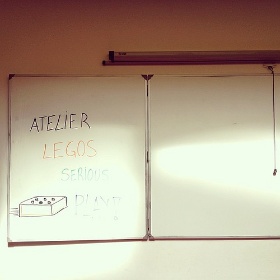 ATELIER
LEGOS
SERIOUS
PLAY!!